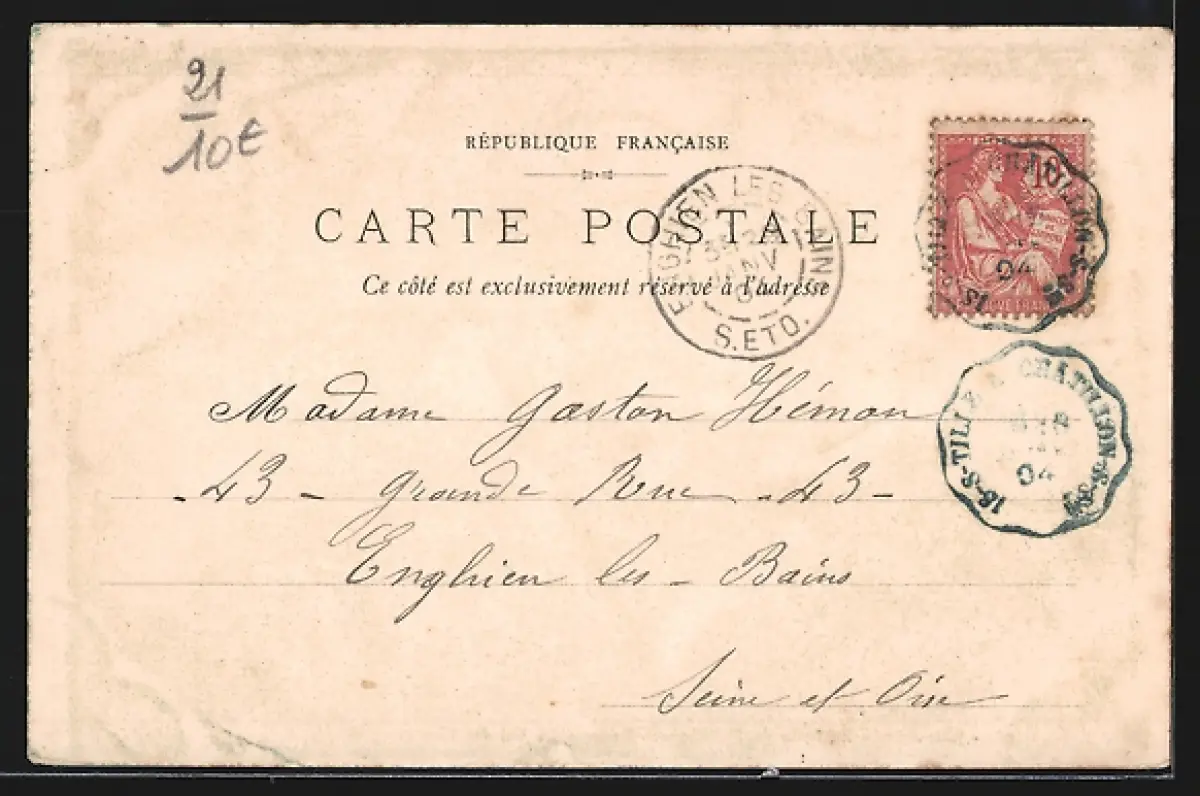 21
10€
RÉPUBLIQUE FRANÇAISE
CARTE POSTALE
Ce côté est exclusivement réservé à l'adresse
ENGHIEN LES BAINS
JANV
S. ET O.
10
04
Madame Gaston Hémon
- 43 - Grande Rue - 43 -
Enghien les - Bains
Seine et Oise
IS-S-TILLE A CHATILLON-S-S
04